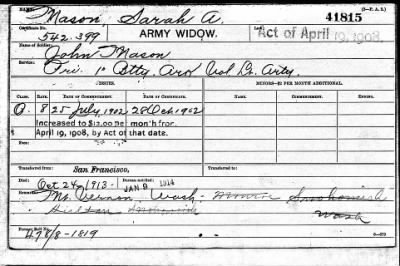 NAME:
Mason, Sarah A.
41815
Certificate No.
542.399
ARMY WIDOW.
Act of April 19, 1908.
Name of Soldier:
John Mason
Service:
Pri. 1" Btty, Ark Vol Lt. Arty.
ISSUES.
MINORS—$2 PER MONTH ADDITIONAL.
CLASS.
RATE.
DATE OF COMMENCEMENT.
O.
8
25 July, 1902
28 Oct. 1902
Increased to $12.00 per month from
April 19, 1908, by Act of that date.
Transferred from
San Francisco,
Died:
Oct 24, 1913.
JAN 9 1914
Remarks:
Mt. Vernon, Wash. Monroe Snohomish
Wash
Former Roll No.
478/8-1819